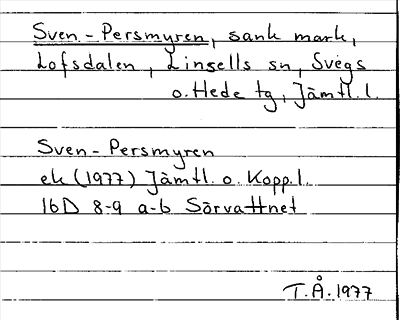 Sven-Persmyren, sank mark,
Lofsdalen, Lingells sn, Svegs
o. Hede tg, Jämtl. l.
Sven-Persmyren
ek (1977) Jämtl. o. Kopp. l.
16D 8-9 a-b Sörvattnet
T.Å. 1977